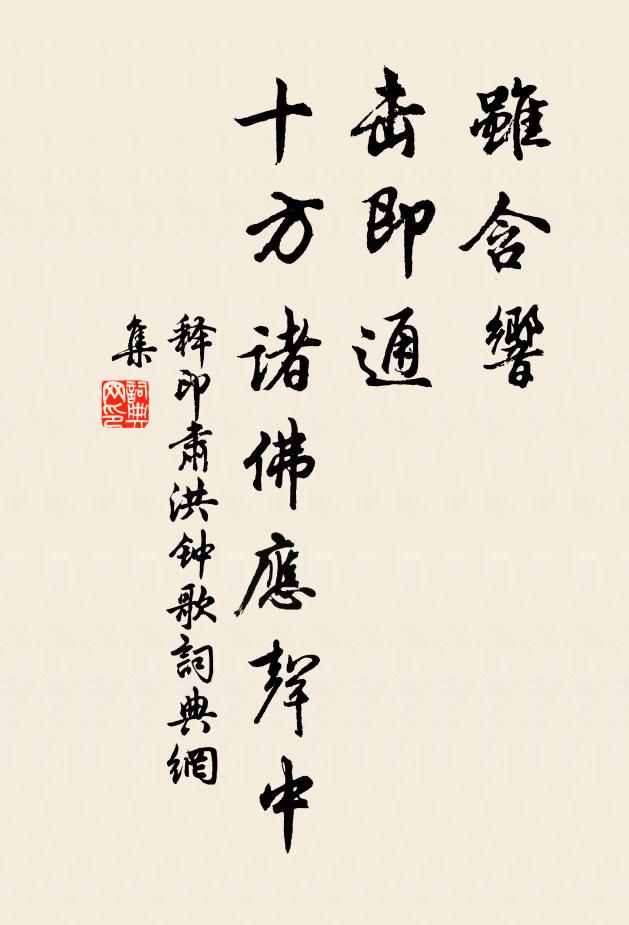 雖含響
击即通
十方諸佛應聲中
释印肃洪钟歌詞典網
集
詞典
网印